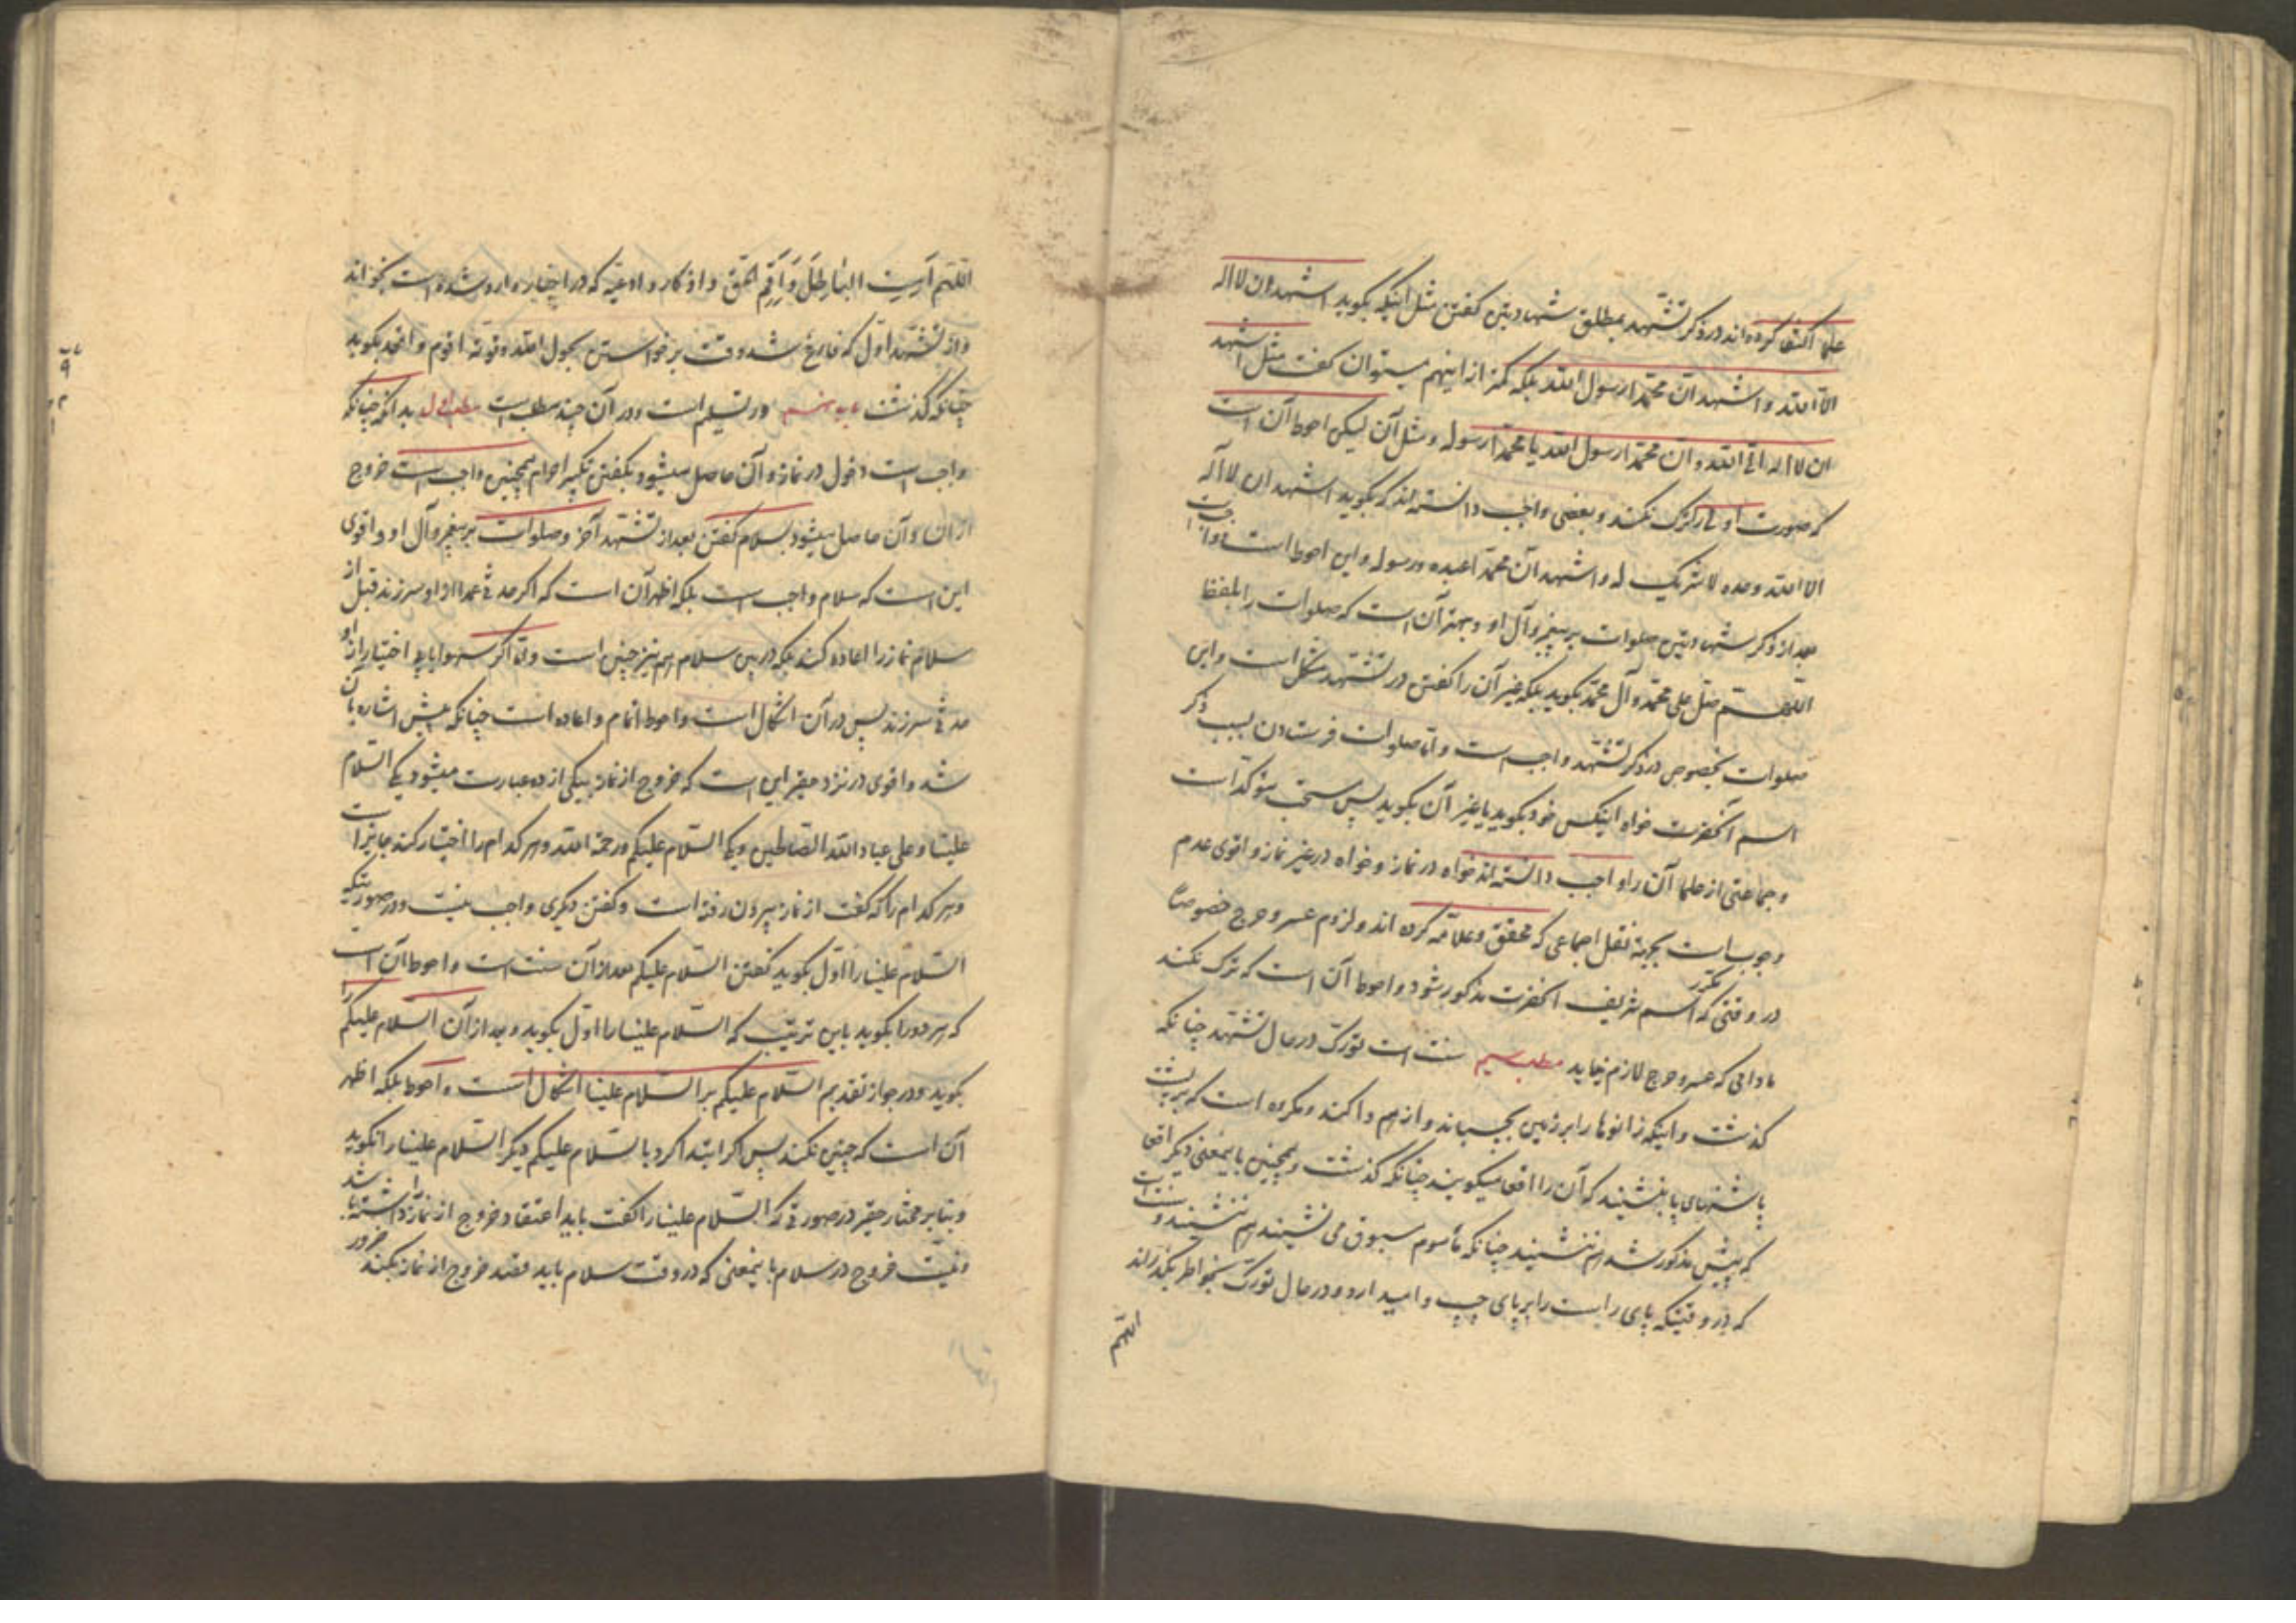 علما اکتفا کرده‌اند در ذکر تشهد بمطلق شهادتین گفتن مثل اینکه بگوید اشهد ان لا اله
الا الله و اشهد ان محمدا رسول الله بلکه کمتر از اینهم میتوان گفت مثل اشهد
ان لا اله الا الله و ان محمدا رسول الله یا محمدا رسوله و مثل آن لیکن احوط آن است
که صورت اول را ترک نکند و بعضی واجب دانسته‌اند که بگوید اشهد ان لا اله
الا الله وحده لا شریک له و اشهد ان محمدا عبده و رسوله و این احوط است و واجبست
بعد از ذکر شهادتین صلوات بر پیغمبر و آل او و بهتر آن است که صلوات را بلفظ
اللهم صل علی محمد و آل محمد بگوید بلکه غیر آن را گفتن در تشهد مشکل است و این
صلوات بخصوص در ذکر تشهد واجب است و اما صلوات فرستادن بسبب ذکر
اسم آنحضرت خواه اینکس خود بگوید یا غیر آن بگوید پس سنت مؤکد است
و جماعتی از علما آن را واجب دانسته‌اند خواه در نماز و خواه در غیر نماز و اقوی عدم
وجوب است بجهة نقل اجماعی که محقق و علامه کرده‌اند و لزوم عسر و حرج خصوصا
در وقتی که اسم شریف آنحضرت مکرر مذکور شود و احوط آن است که ترک نکند
مادامی که عسر و حرج لازم نیاید مطلب سیم سنت است تورک در حال تشهد چنانکه
گذشت و اینکه زانوها را بر زمین بچسباند و از هم وا کند و مکروه است که بر پشت
پاشنهای پا بنشیند که آن را اقعا میگویند چنانکه گذشت و همچنین بامعنی دیگر اقعا
که پیش مذکور شد هم ننشیند چنانکه مأموم مسبوق می نشیند هم ننشیند و سنت است
که در وقتیکه پای راست را بر پای چپ وا میدارد و در حال تورک بخواطر بگذراند
اللهم
اللهم آمت الباطل و اقم الحق و اذکار و ادعیه که در اخبار وارد شده است بخواند
و از تشهد اول که فارغ شد وقت برخواستن بحول الله و قوته اقوم و اقعد بگوید
چنانکه گذشت باب هشتم در تسلیم است و در آن چند مطلب است مطلب اول بدانکه چنانکه
واجب است دخول در نماز و آن حاصل میشود بگفتن تکبیر احرام همچنین واجب است خروج
از آن و آن حاصل میشود بسلام گفتن بعد از تشهد آخر و صلوات بر پیغمبر و آل او و اقوی
این است که سلام واجب است بلکه اظهر آن است که اگر حدثی عمدا از او سر زند قبل از
سلام نماز را اعاده کند بلکه در بین سلام هم نیز چنین است و اما اگر سهوا یا بی اختیار از او
حدثی سر زند پس در آن اشکال است و احوط اتمام و اعاده است چنانکه پیش اشاره بآن
شد و اقوی در نزد حقیر این است که خروج از نماز بیکی از دو عبارت میشود یکی السلام
علینا و علی عباد الله الصالحین و یکی السلام علیکم و رحمة الله و هر کدام را اختیار کند جایز است
و هر کدام را که گفت از نماز بیرون رفته است و گفتن دیگری واجب نیست و در صورتیکه
السلام علینا را اول بگوید گفتن السلام علیکم بعد از آن سنت است و احوط آن است
که هر دو را بگوید باین ترتیب که السلام علینا را اول بگوید و بعد از آن السلام علیکم را
بگوید و در جواز تقدیم السلام علیکم بر السلام علینا اشکال است و احوط بلکه اظهر
آن است که چنین نکند پس اگر ابتدا کرد بالسلام علیکم دیگر السلام علینا را نگوید
و بنابر مختار حقیر در صورتی که السلام علینا را گفت باید اعتقاد خروج از نماز را داشته باشد
و نیت خروج در سلام باینمعنی که در وقت سلام باید قصد خروج از نماز بکند ضرور